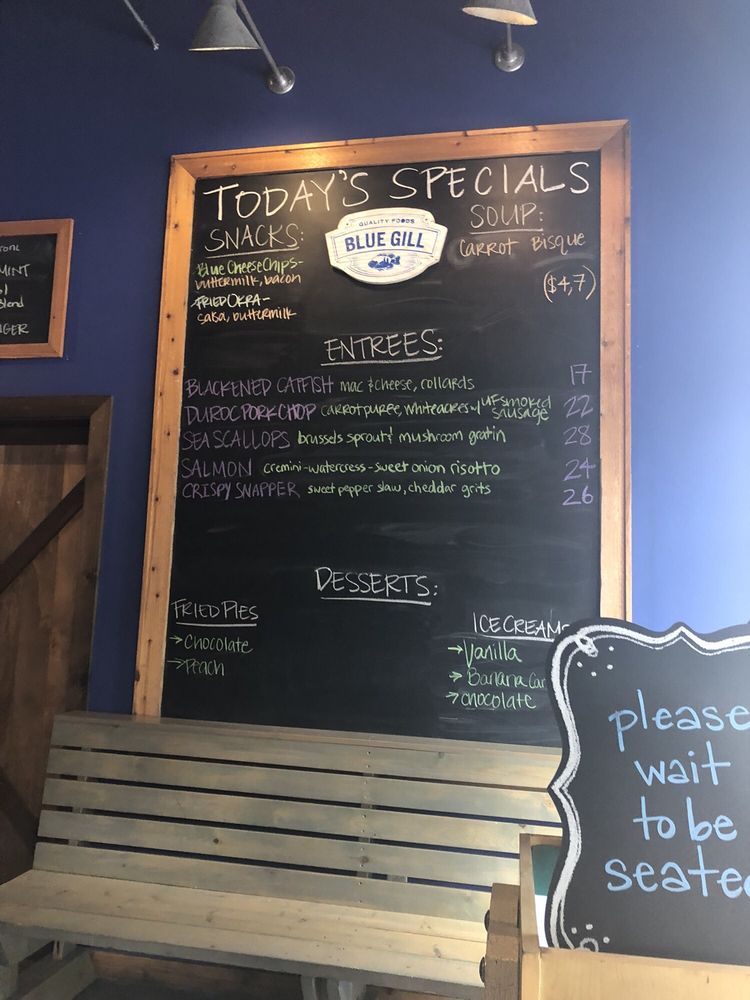 TODAY'S SPECIALS
SNACKS:
Blue Cheese Chips-
buttermilk, bacon
FRIED OKRA-
salsa, buttermilk
QUALITY FOODS
BLUE GILL
SOUP:
CARROT Bisque
($4,7)
ENTREES:
BLACKENED CATFISH mac & cheese, collards 17
DUROC PORK CHOP carrot puree, white acres w/ UF smoked sausage 22
SEA SCALLOPS brussels sprout & mushroom gratin 28
SALMON cremini-watercress-sweet onion risotto 24
CRISPY SNAPPER sweet pepper slaw, cheddar grits 26
DESSERTS:
FRIED PIES
→Chocolate
→Peach
ICE CREAMS
→Vanilla
→Banana Car
→chocolate
MINT
Blend
please
wait
to be
seated